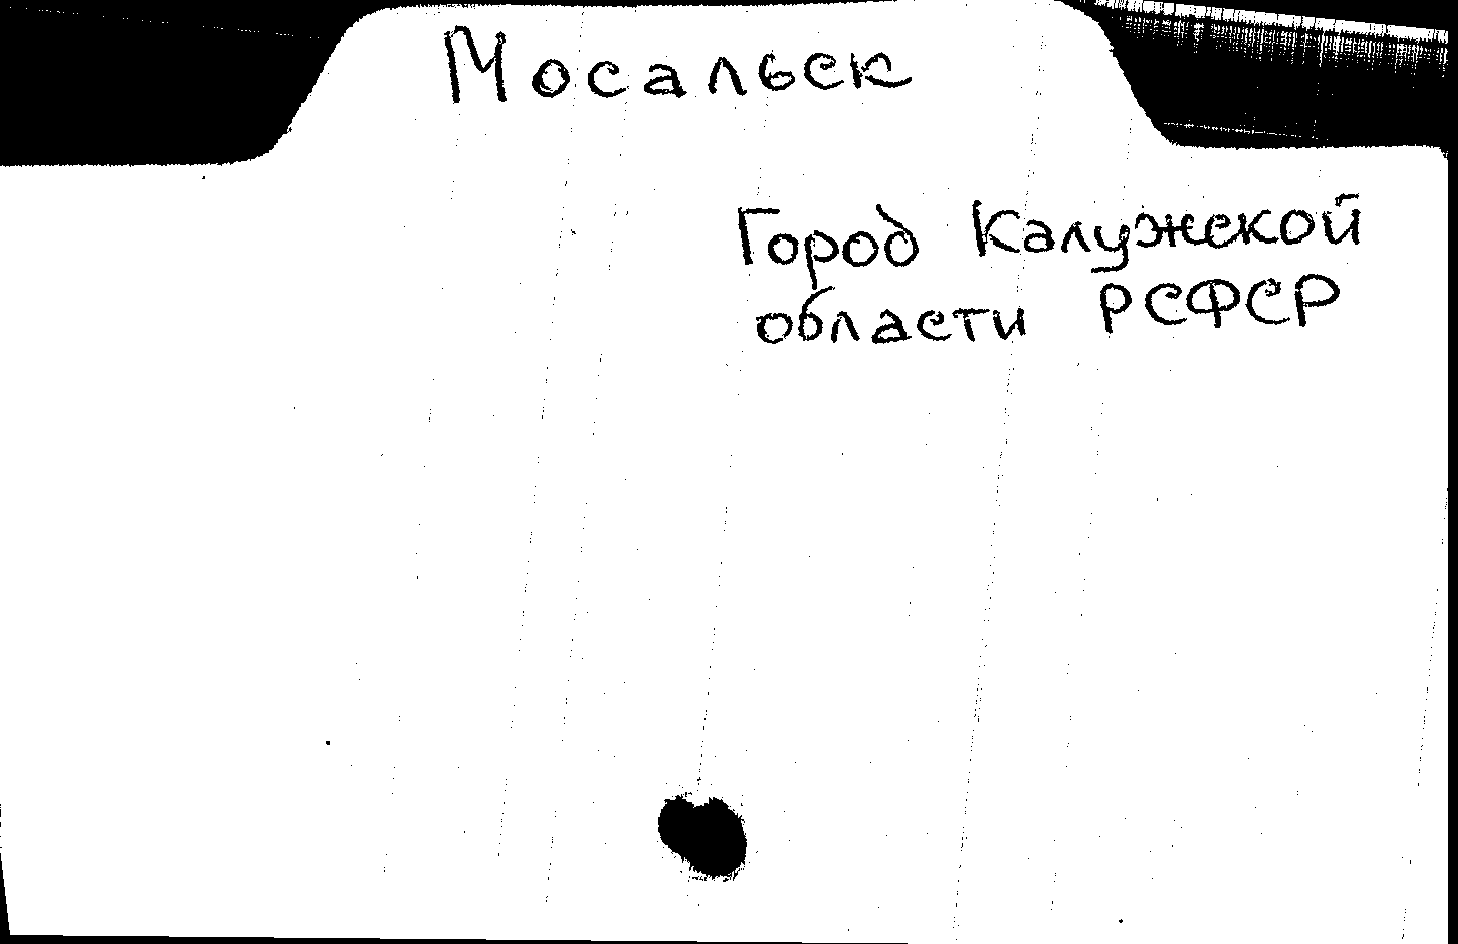 Мосальск
Город Калужской
области РСФСР